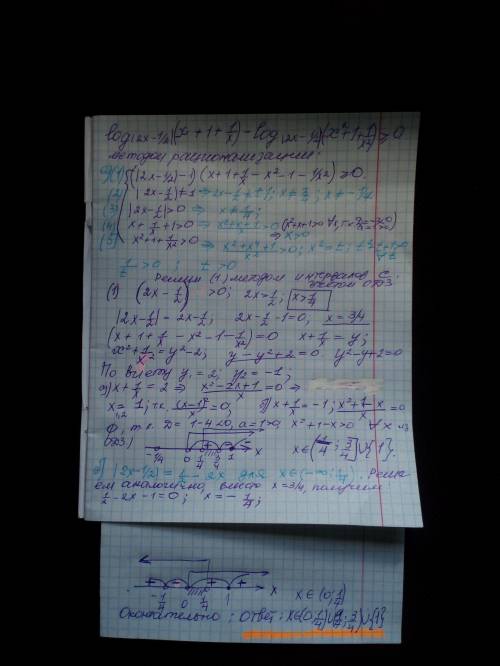 log|2x-1/2|(x+1+1/x) - log|2x-1/2|(x²+1+1/x²) ≥ 0
методом рационализации:
(1) (|2x-1/2|-1)(x+1+1/x-x²-1-1/x²) ≥ 0
(2) |2x-1/2| ≠ 1 ⇒ 2x-1/2 ≠ ±1; x ≠ 3/4; x ≠ -1/4
(3) |2x-1/2| > 0 ⇒ x ≠ 1/4;
(4) x+1/x+1>0 ⇒ (x²+x+1)/x > 0
⇒ x>0
(5) x²+1+1/x²>0
1/t > 0; t>0
Решим (1) методом интервалов с
учётом ОДЗ
(1) (2x-1/2) >0; 2x>1/2; x>1/4
|2x-1/2| = 2x-1/2; 2x-1/2-1=0, x=3/4
(x+1+1/x-x²-1-1/x²)=0 x+1/x=y;
x²+1/x²=y²-2; y-y²+2=0 y²-y-2=0
По Виету y₁=2; y₂=-1;
а) x+1/x=2 ⇒ (x²-2x+1)/x=0 ⇒
x₁,₂=1; т.к. (x-1)²/x=0; б) x+1/x=-1; =0
∅, т.к. D=1-4<0, a=1>0, x²+1-x>0 ∀x из
ОДЗ)
-1/4 0 1/4 3/4 1 x
x∈(1/4; 3/4]∪{1}.
б) |2x-1/2| = 1/2-2x для x∈(-∞; 1/4). Реша-
ем аналогично, вместо x=3/4, получим
1/2-2x-1=0; x=-1/4;
+ - + +
-1/4 0 1/4 1 x x∈(0; 1/4)
Окончательно: Ответ: x∈(0; 1/4)∪(1/4; 3/4)∪{1}